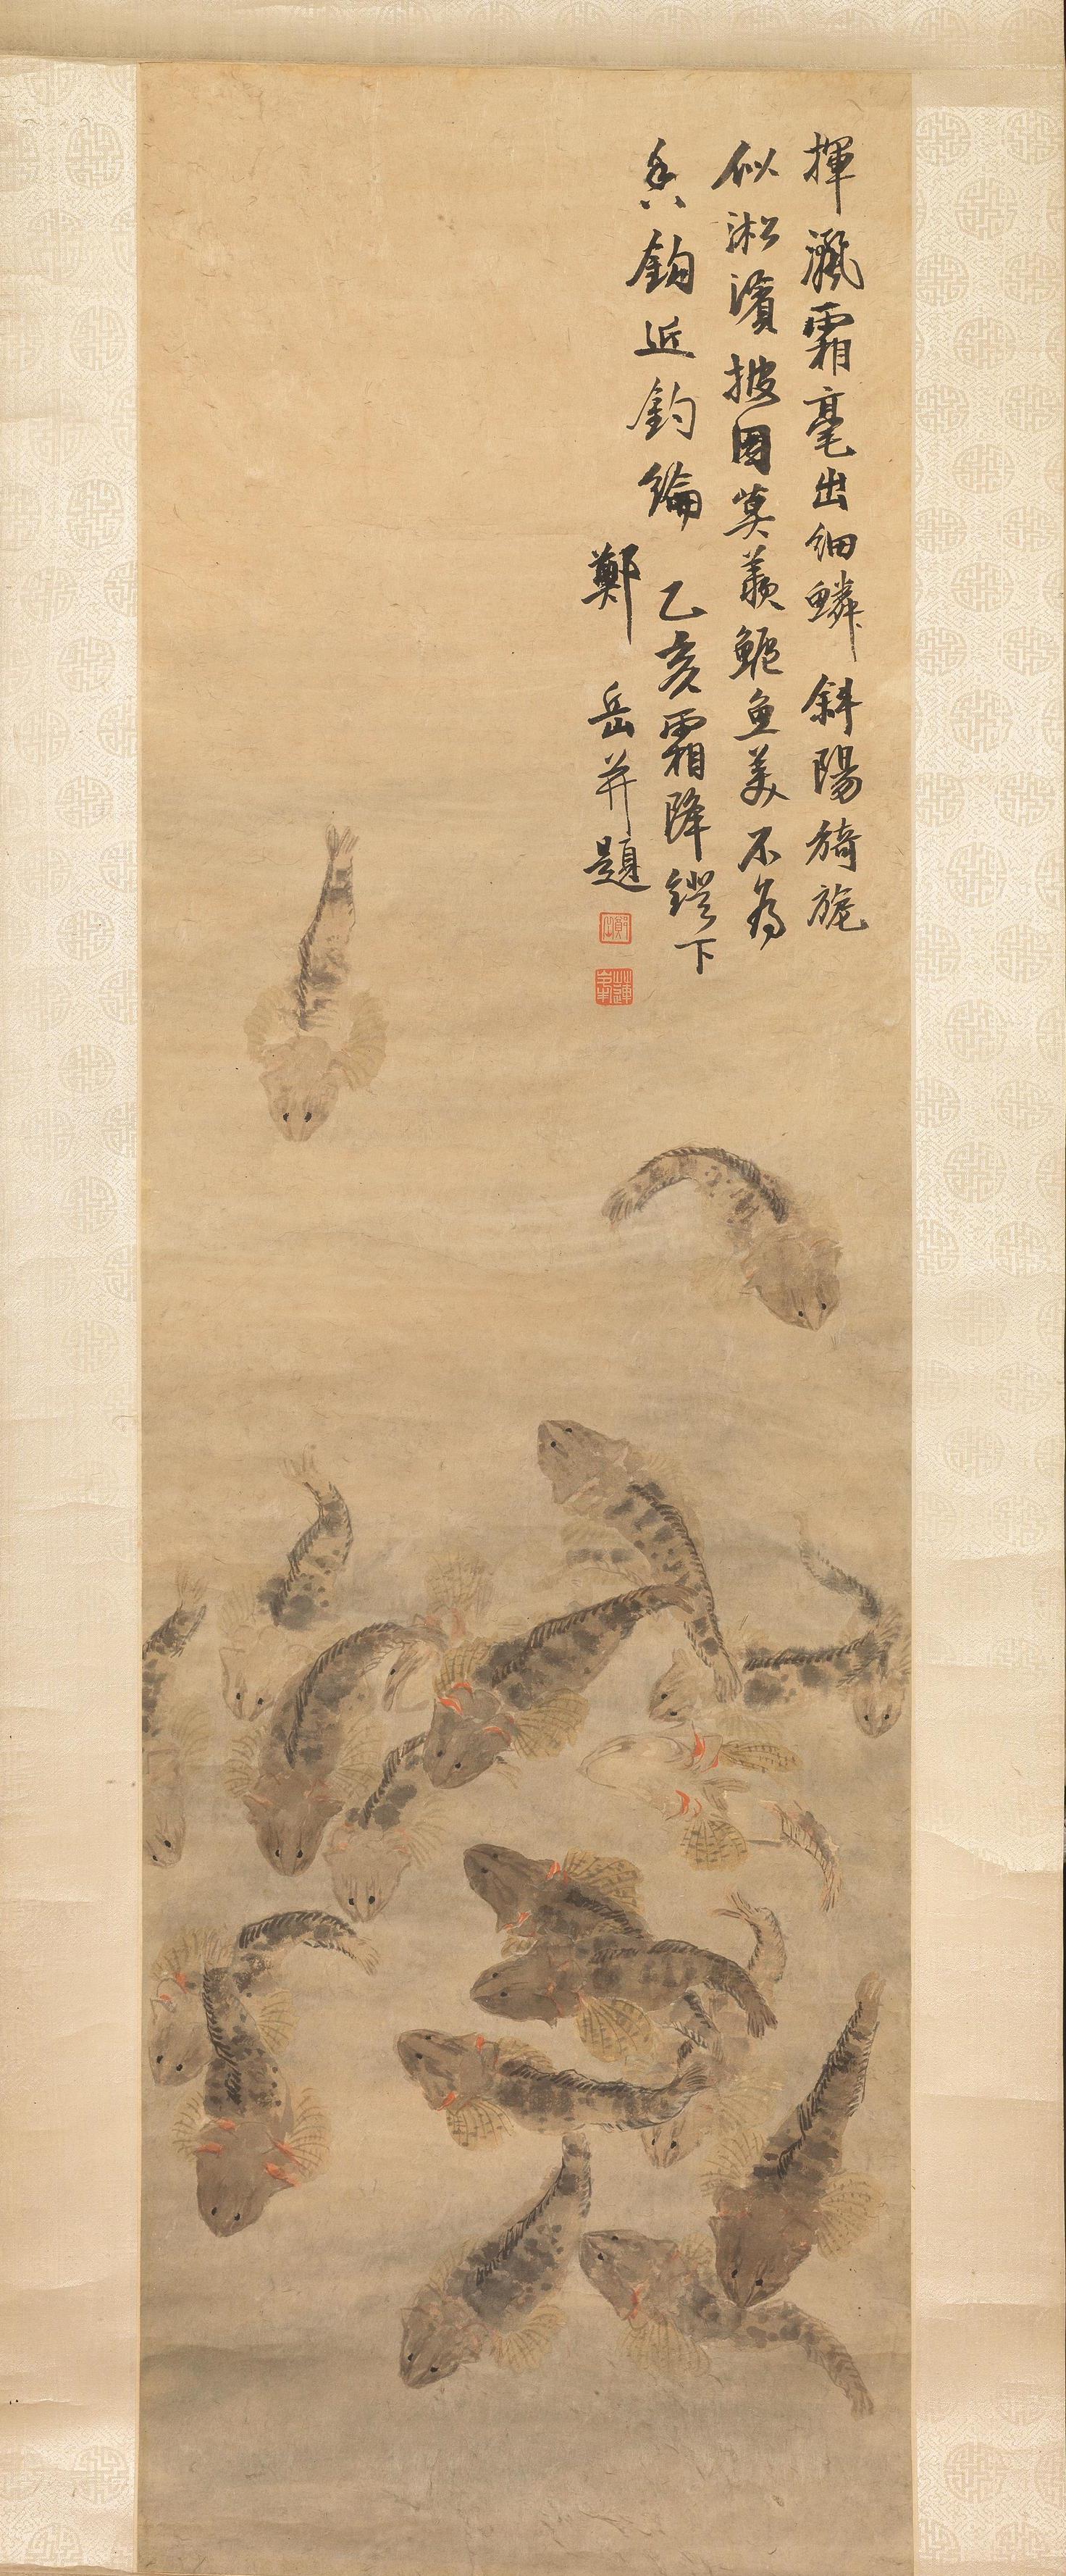 揮灑霜毫出細鱗斜陽旖旎
似淞濱披圖莫羨鱸魚美不為
香鉤近釣綸乙亥霜降鐙下
鄭岳并題